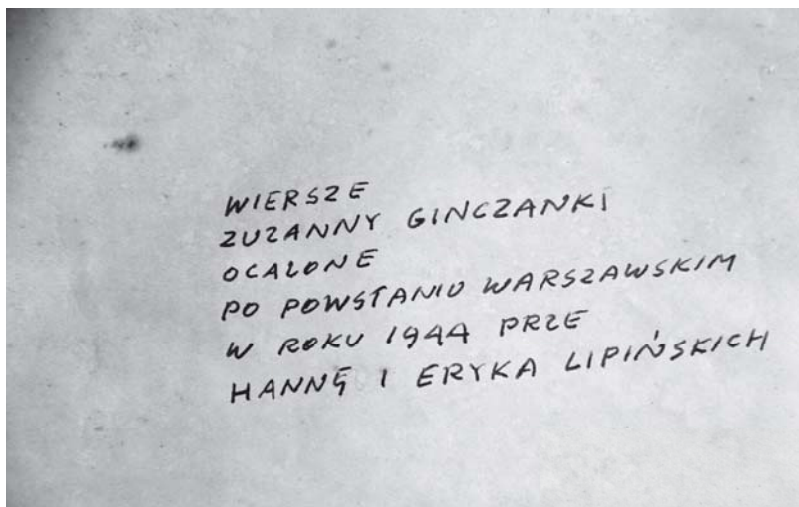 WIERSZE
ZUZANNY GINCZANKI
OCALONE
PO POWSTANIU WARSZAWSKIM
W ROKU 1944 PRZE
HANNĘ I ERYKA LIPIŃSKICH